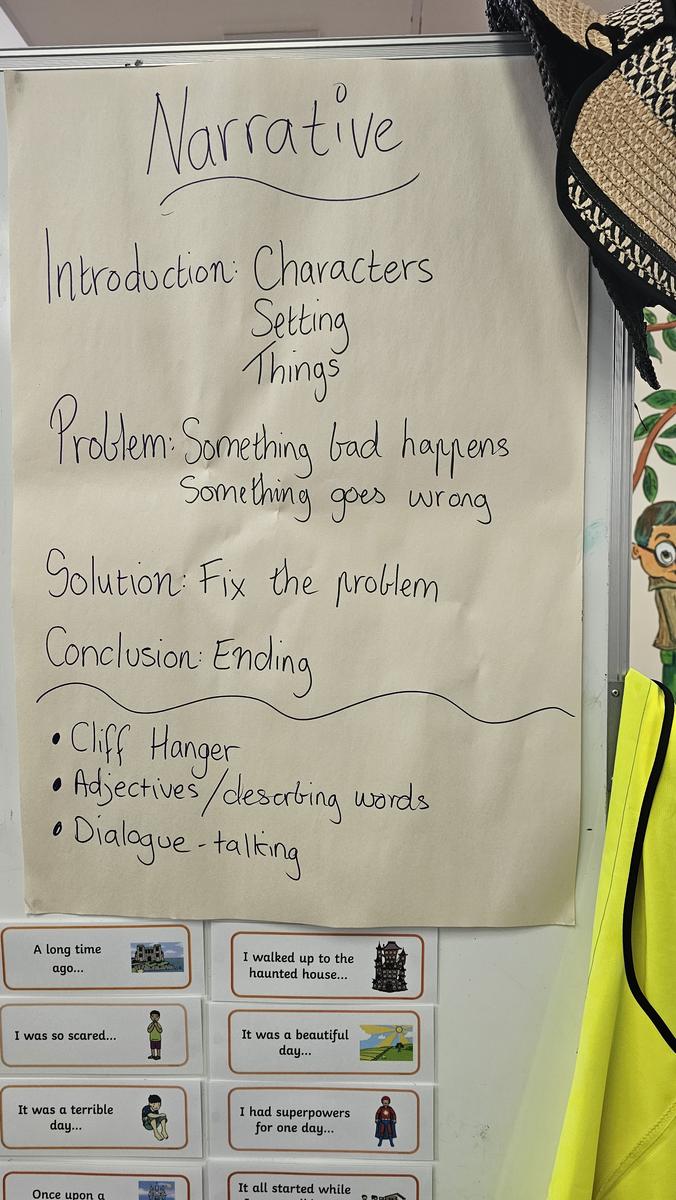 Narrative
Introduction: Characters
Setting
Things
Problem: Something bad happens
Something goes wrong
Solution: Fix the problem
Conclusion: Ending
• Cliff Hanger
• Adjectives/describing words
• Dialogue - talking
A long time
ago...
I walked up to the
haunted house...
I was so scared...
It was a beautiful
day...
It was a terrible
day...
I had superpowers
for one day...
Once upon a
It all started while